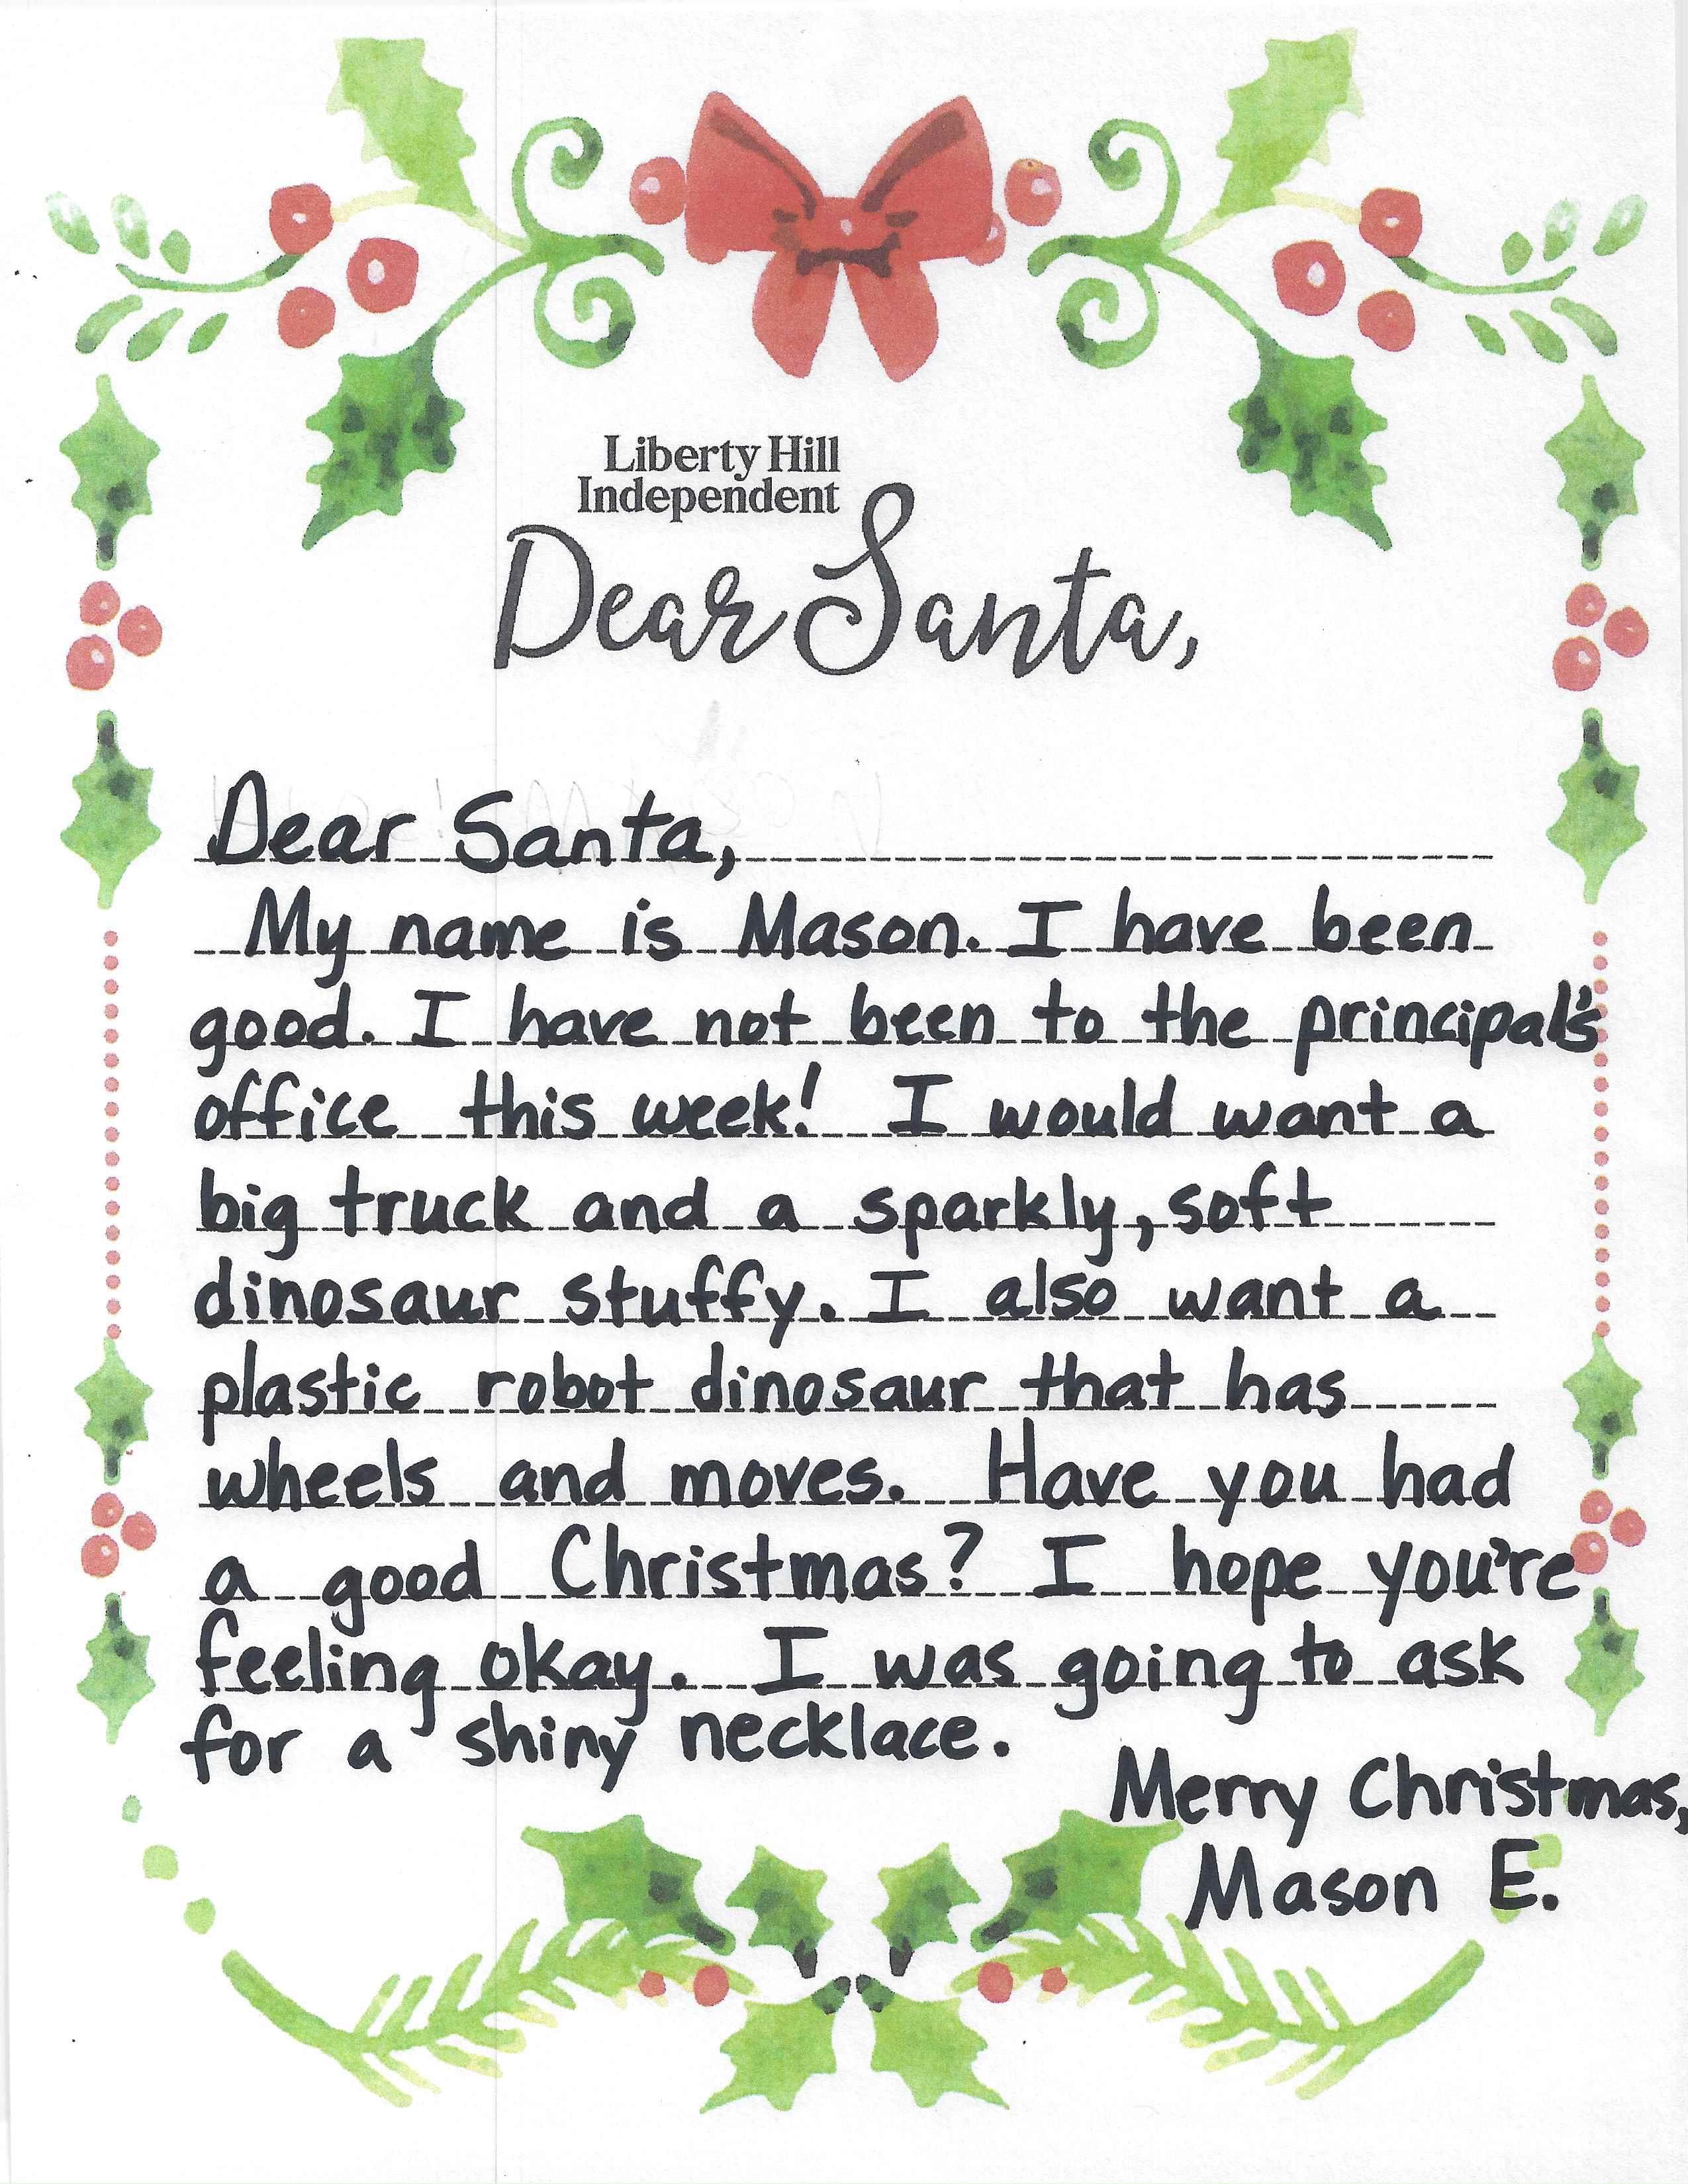 Liberty Hill
Independent
Dear Santa,
Dear Santa,
My name is Mason. I have been
good. I have not been to the principal's
office this week! I would want a
big truck and a sparkly, soft
dinosaur stuffy. I also want a
plastic robot dinosaur that has
wheels and moves. Have you had
a good Christmas? I hope you're
feeling okay. I was going to ask
for a shiny necklace.
Merry Christmas,
Mason E.